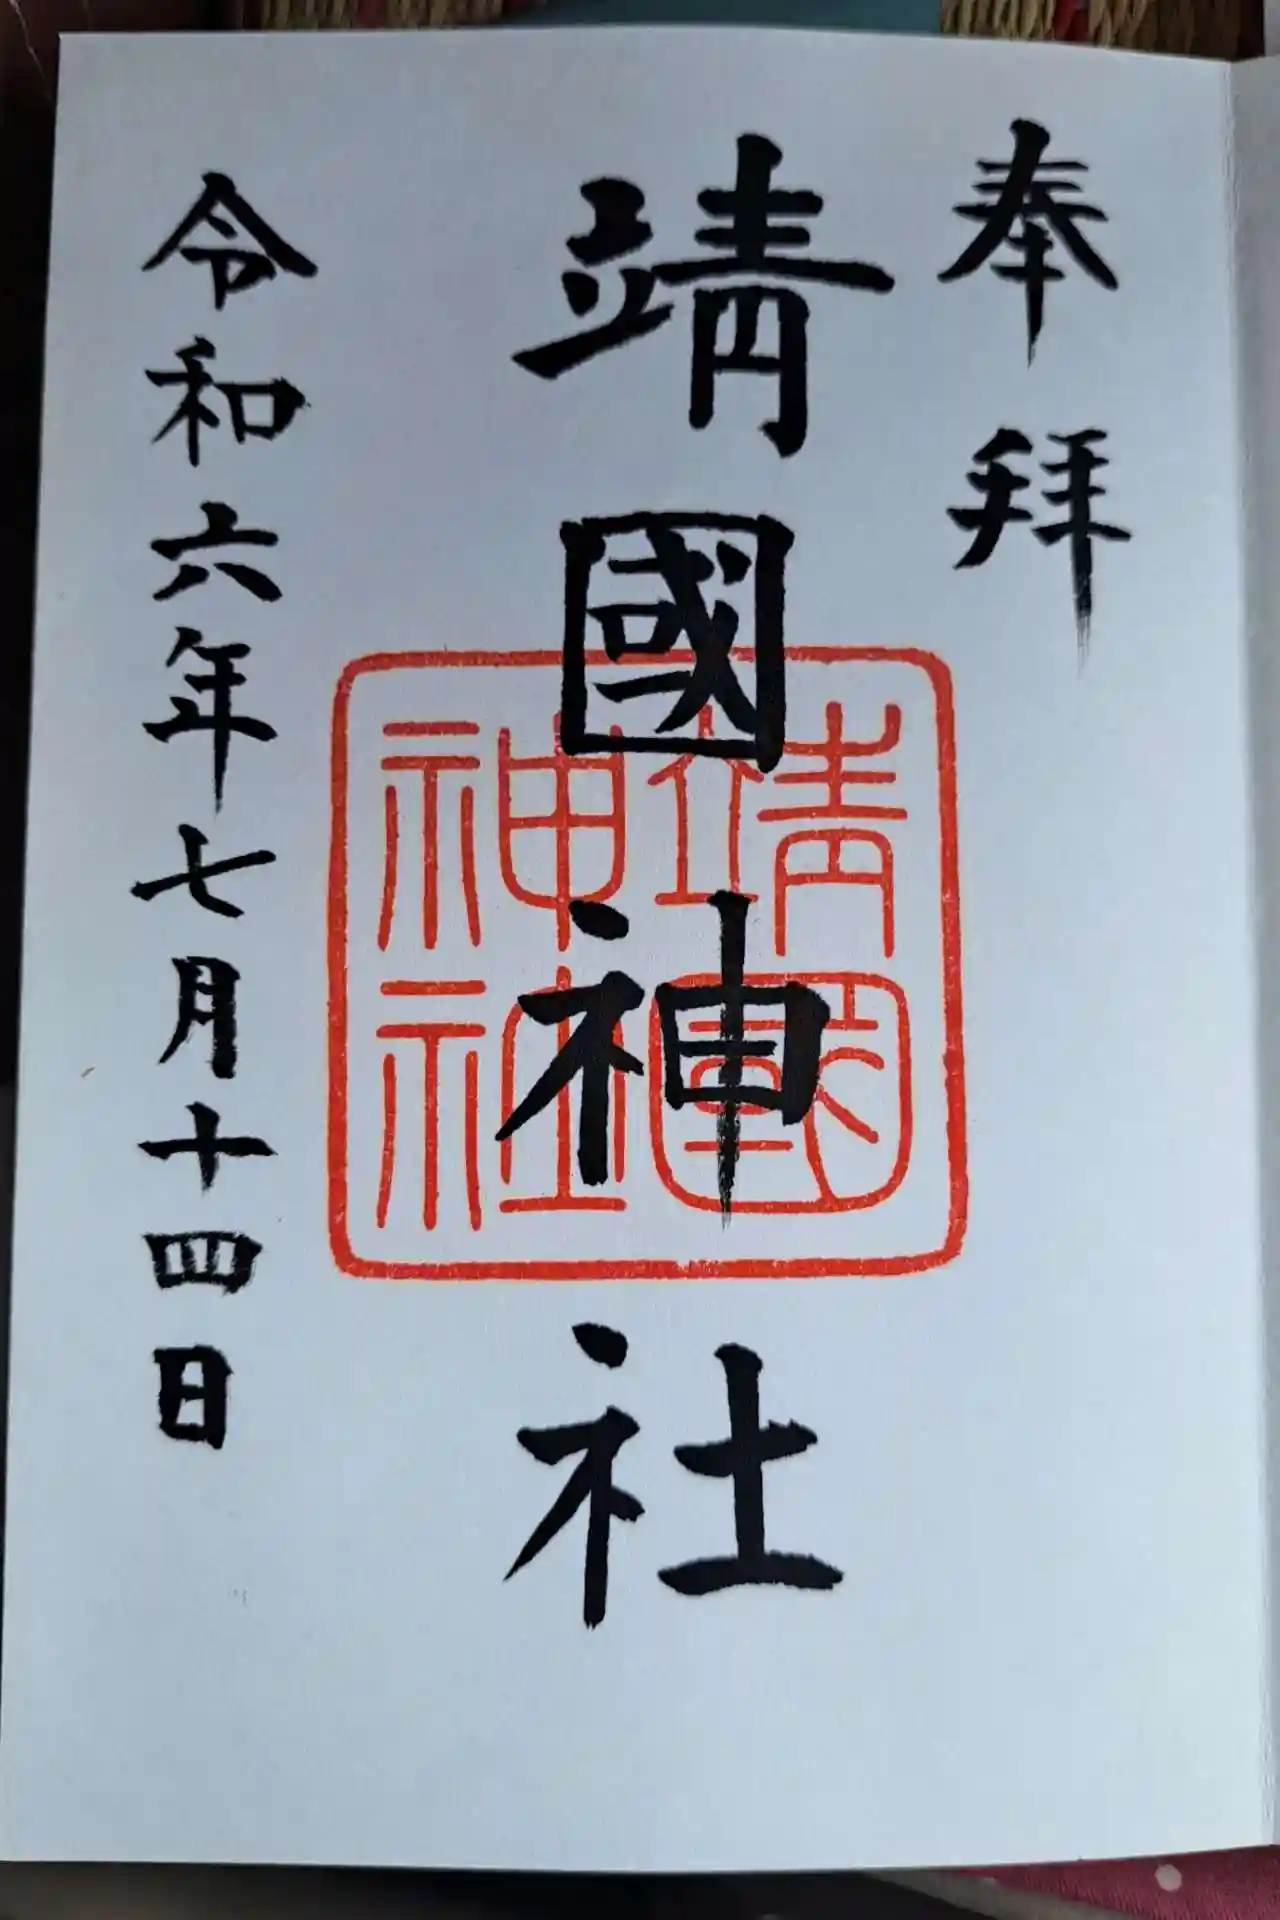 奉拝
靖國神社
靖國
神社
令和六年七月十四日